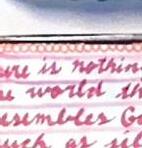 ere is nothin
e world th
esembles Go
uch as sil